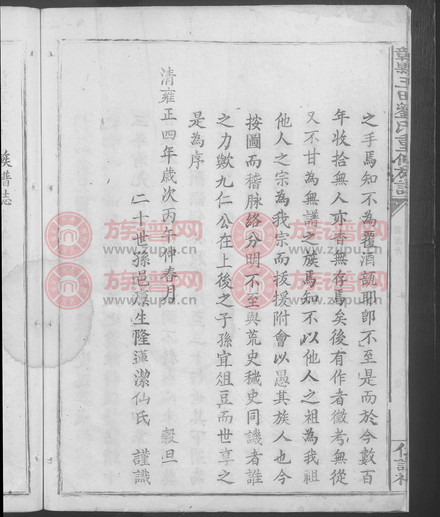 之手焉知不為覆酒瓿耶即不至是而於今數百
年收拾無人亦杳無存焉矣後有作者徵考無從
又不甘為無譜之族焉知不以他人之祖為我祖
他人之宗為我宗而援附會以愚其族人也今
按圖而稽脉絡分明不至與荒史穢史同譏者誰
之力歟九仁公在上後之子孫宜俎豆而世享之
是為序
清雍正四年歲次丙午仲春月 穀旦
二十世孫邑庠生隆漢潔仙氏 謹識
劉氏重修族譜
族譜誌
族譜网
www.zupu.cn